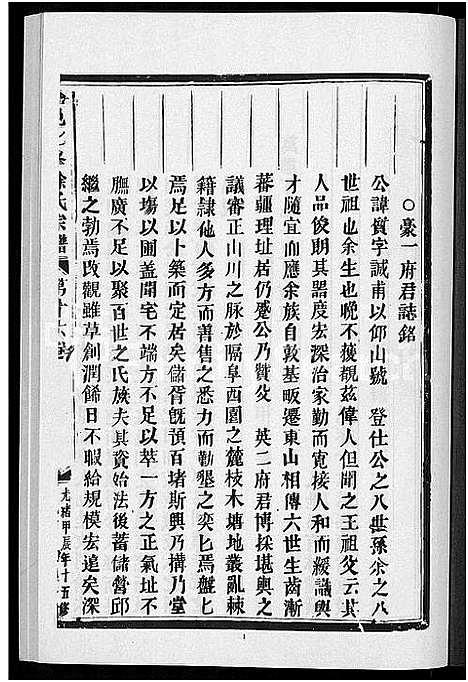 ○豪一府君誌銘
公諱質字誠甫以仰山號 登仕公之八世孫余之八
世祖也余生也晚不獲覩茲偉人但聞之王祖父云其
人品俊朗其器度宏深治家勤而寬接人和而緩議輿
才隨宜而應余族自敦基畈遷東山相傳六世生齒漸
蕃疆理址居仍蹙公乃贊父 英二府君博採堪輿之
議審正山川之脉於隔阜西園之麓枝木塘地叢亂棘
籍隷他人多方而善售之力而勤墾之奕匕焉盤匕
焉足以卜築而定居矣儲胥旣預百堵斯興乃搆乃堂
以塲以圃盖聞宅不端方不足以萃一方之正氣址不
膴廣不足以聚百世之氏族夫其資始法後蓄儲營邱
繼之勃焉改觀雖草創潤餙日不暇給規模宏遠矣深
徐氏宗譜 第十六卷
光緒甲辰年十五修